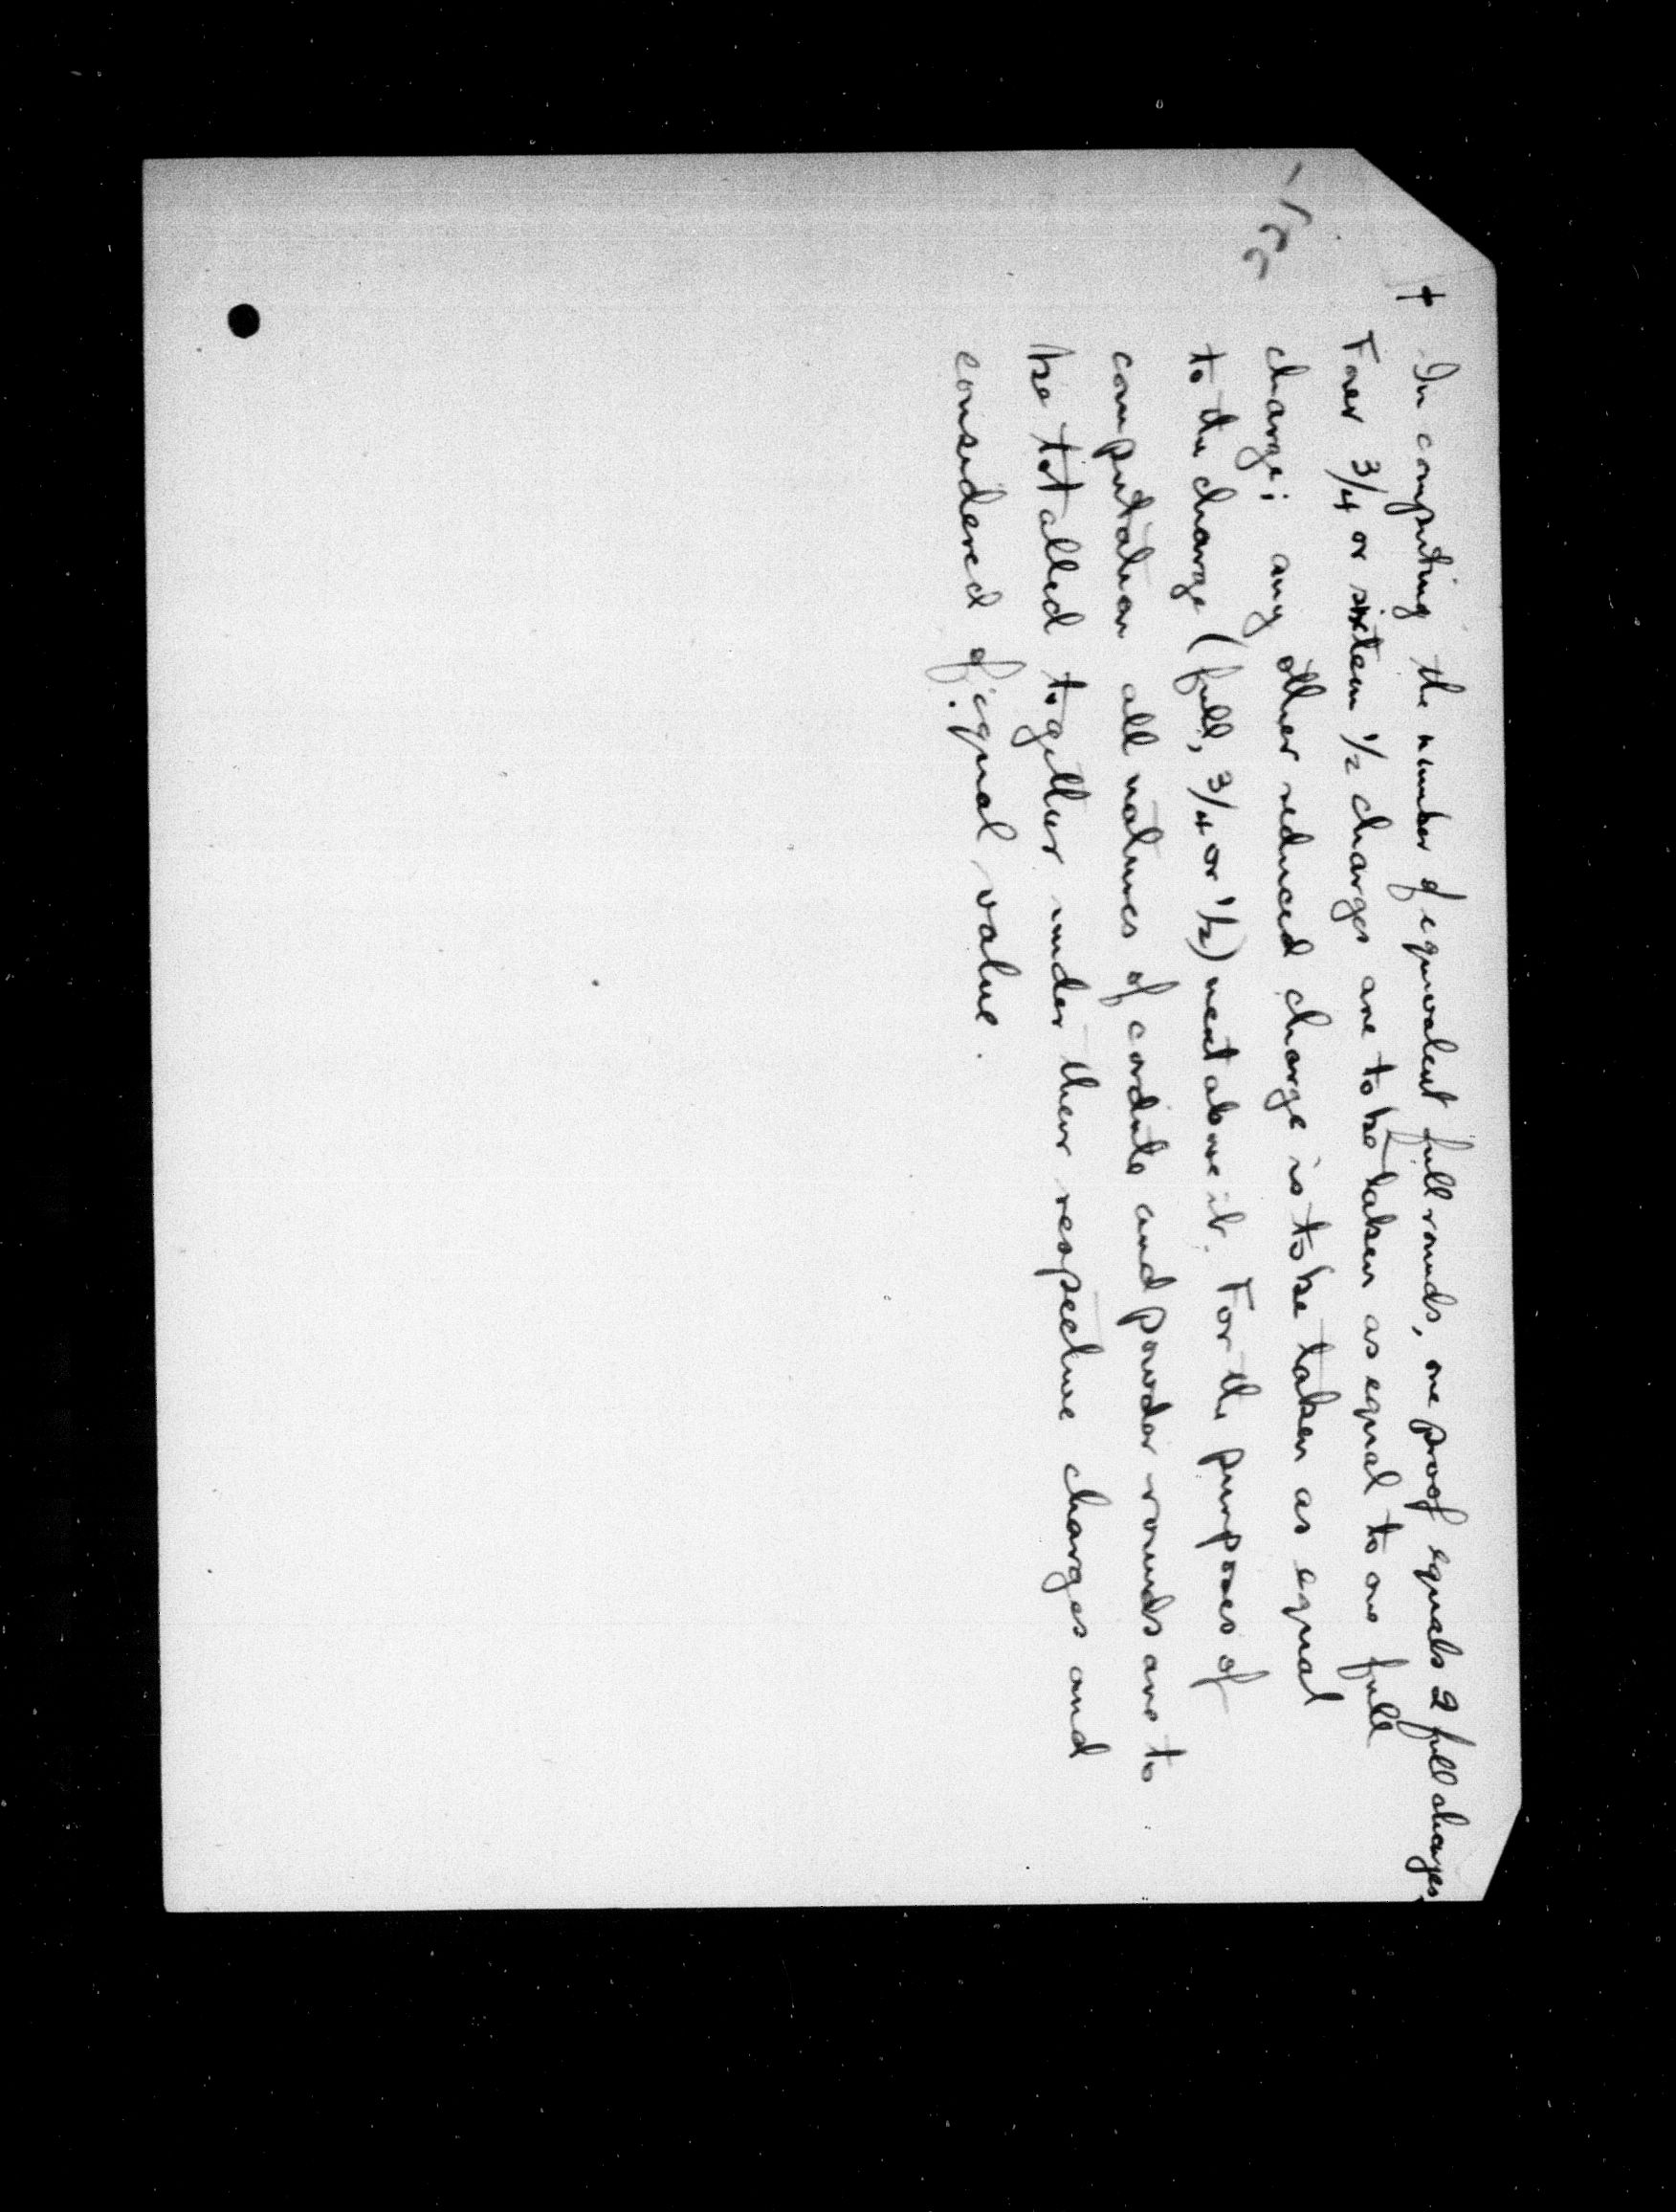 † In computing the number of equivalent full rounds, one proof equals 2 full charges.
Four 3/4 or sixteen 1/2 charges are to be taken as equal to one full
charge; any other reduced charge is to be taken as equal
to the charge (full, 3/4 or 1/2) next above it. For the purposes of
computation all natures of cordite and powder rounds are to
be totalled together under their respective charges and
considered of equal value.